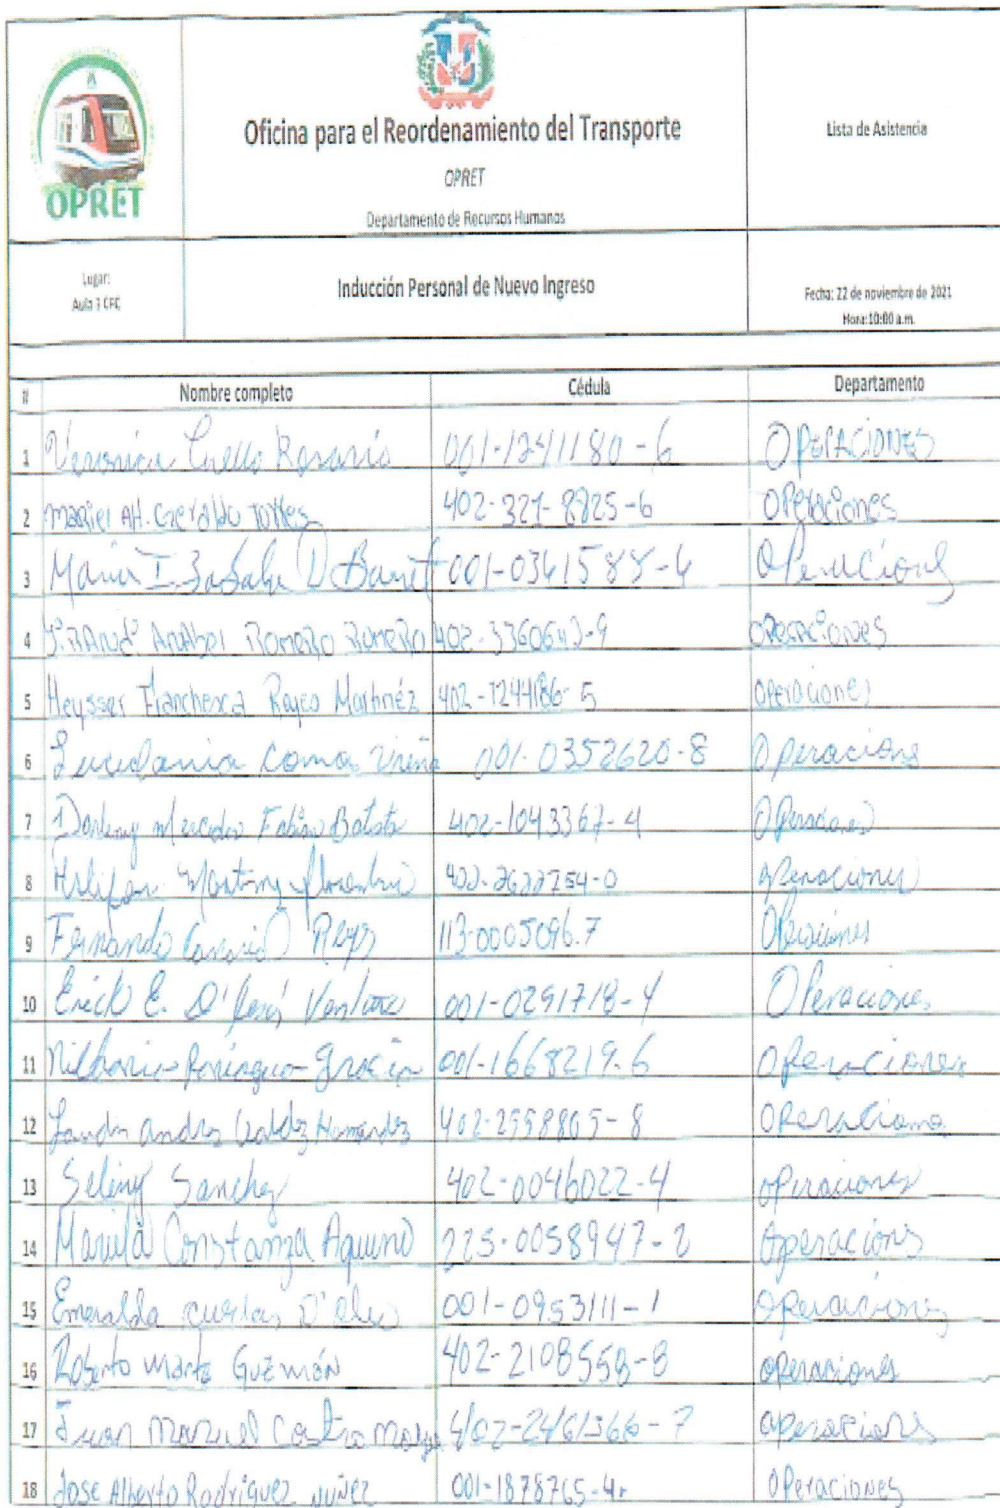 OPRET
Oficina para el Reordenamiento del Transporte
OPRET
Departamento de Recursos Humanos
Lista de Asistencia
Lugar:
Aula 3 CFC
Inducción Personal de Nuevo Ingreso
Fecha: 22 de noviembre de 2021
Hora: 10:00 a.m.
# Nombre completo Cédula Departamento
1 Veronica Cuello Rosario 001-1241180-6 OPERACIONES
2 Mariel Alt. Geraldo Torres 402-321-8825-6 Operaciones
3 Maria I. 001-0361588-4 Operaciones
4 Anabel Romero Romero 402-3360643-9 Operaciones
5 Heysser Franchesca Reyes Martinéz 402-1244186-5 operaciones
6 001-0352620-8 Operaciones
7 Mercedes Fabian Batista 402-1043367-4 Operaciones
8 Martinez 402- operaciones
9 Fernando Reyes 113-0005096.7 Operaciones
10 Erick E. Ventura 001-0291718-4 Operaciones
11 001-1668219.6 Operaciones
12 Landin andres Valdez Hernandez 402-2998865-8 Operaciones
13 Seliny Sanchez 402-0046022-4 operaciones
14 Constanza Aquino 225-0058947-2 Operaciones
15 Emeralda cuevas D'oleo 001-0953111-1 Operaciones
16 Roberto Marte Guzmán 402-2108558-8 operaciones
17 Juan Manuel Castro 402-2461366-7 operaciones
18 Jose Alberto Rodriguez Nuñez 001-1878765-4 Operaciones